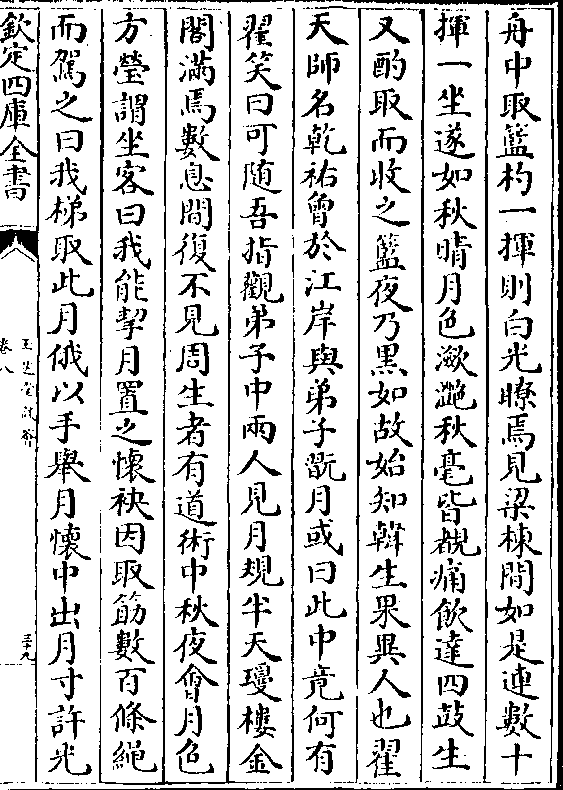 舟中取籃杓一揮則白光瞭焉見梁棟間如是連數十
揮一坐遂如秋晴月色瀲灔秋毫皆覩痛飲達四鼓生
又酌取而收之籃夜乃黑如故始知韓生果異人也翟
天師名乾祐曾於江岸與弟子翫月或曰此中竟何有
翟笑曰可隨吾指觀弟子中兩人見月規半天瓊樓金
閣滿焉數息間復不見周生者有道術中秋夜會月色
方瑩謂坐客曰我能挈月置之懷袂因取筯數百條繩
而駕之曰我梯取此月俄以手舉月懷中出月寸許光
欽定四庫全書
玉芝堂談薈
卷八
三十九